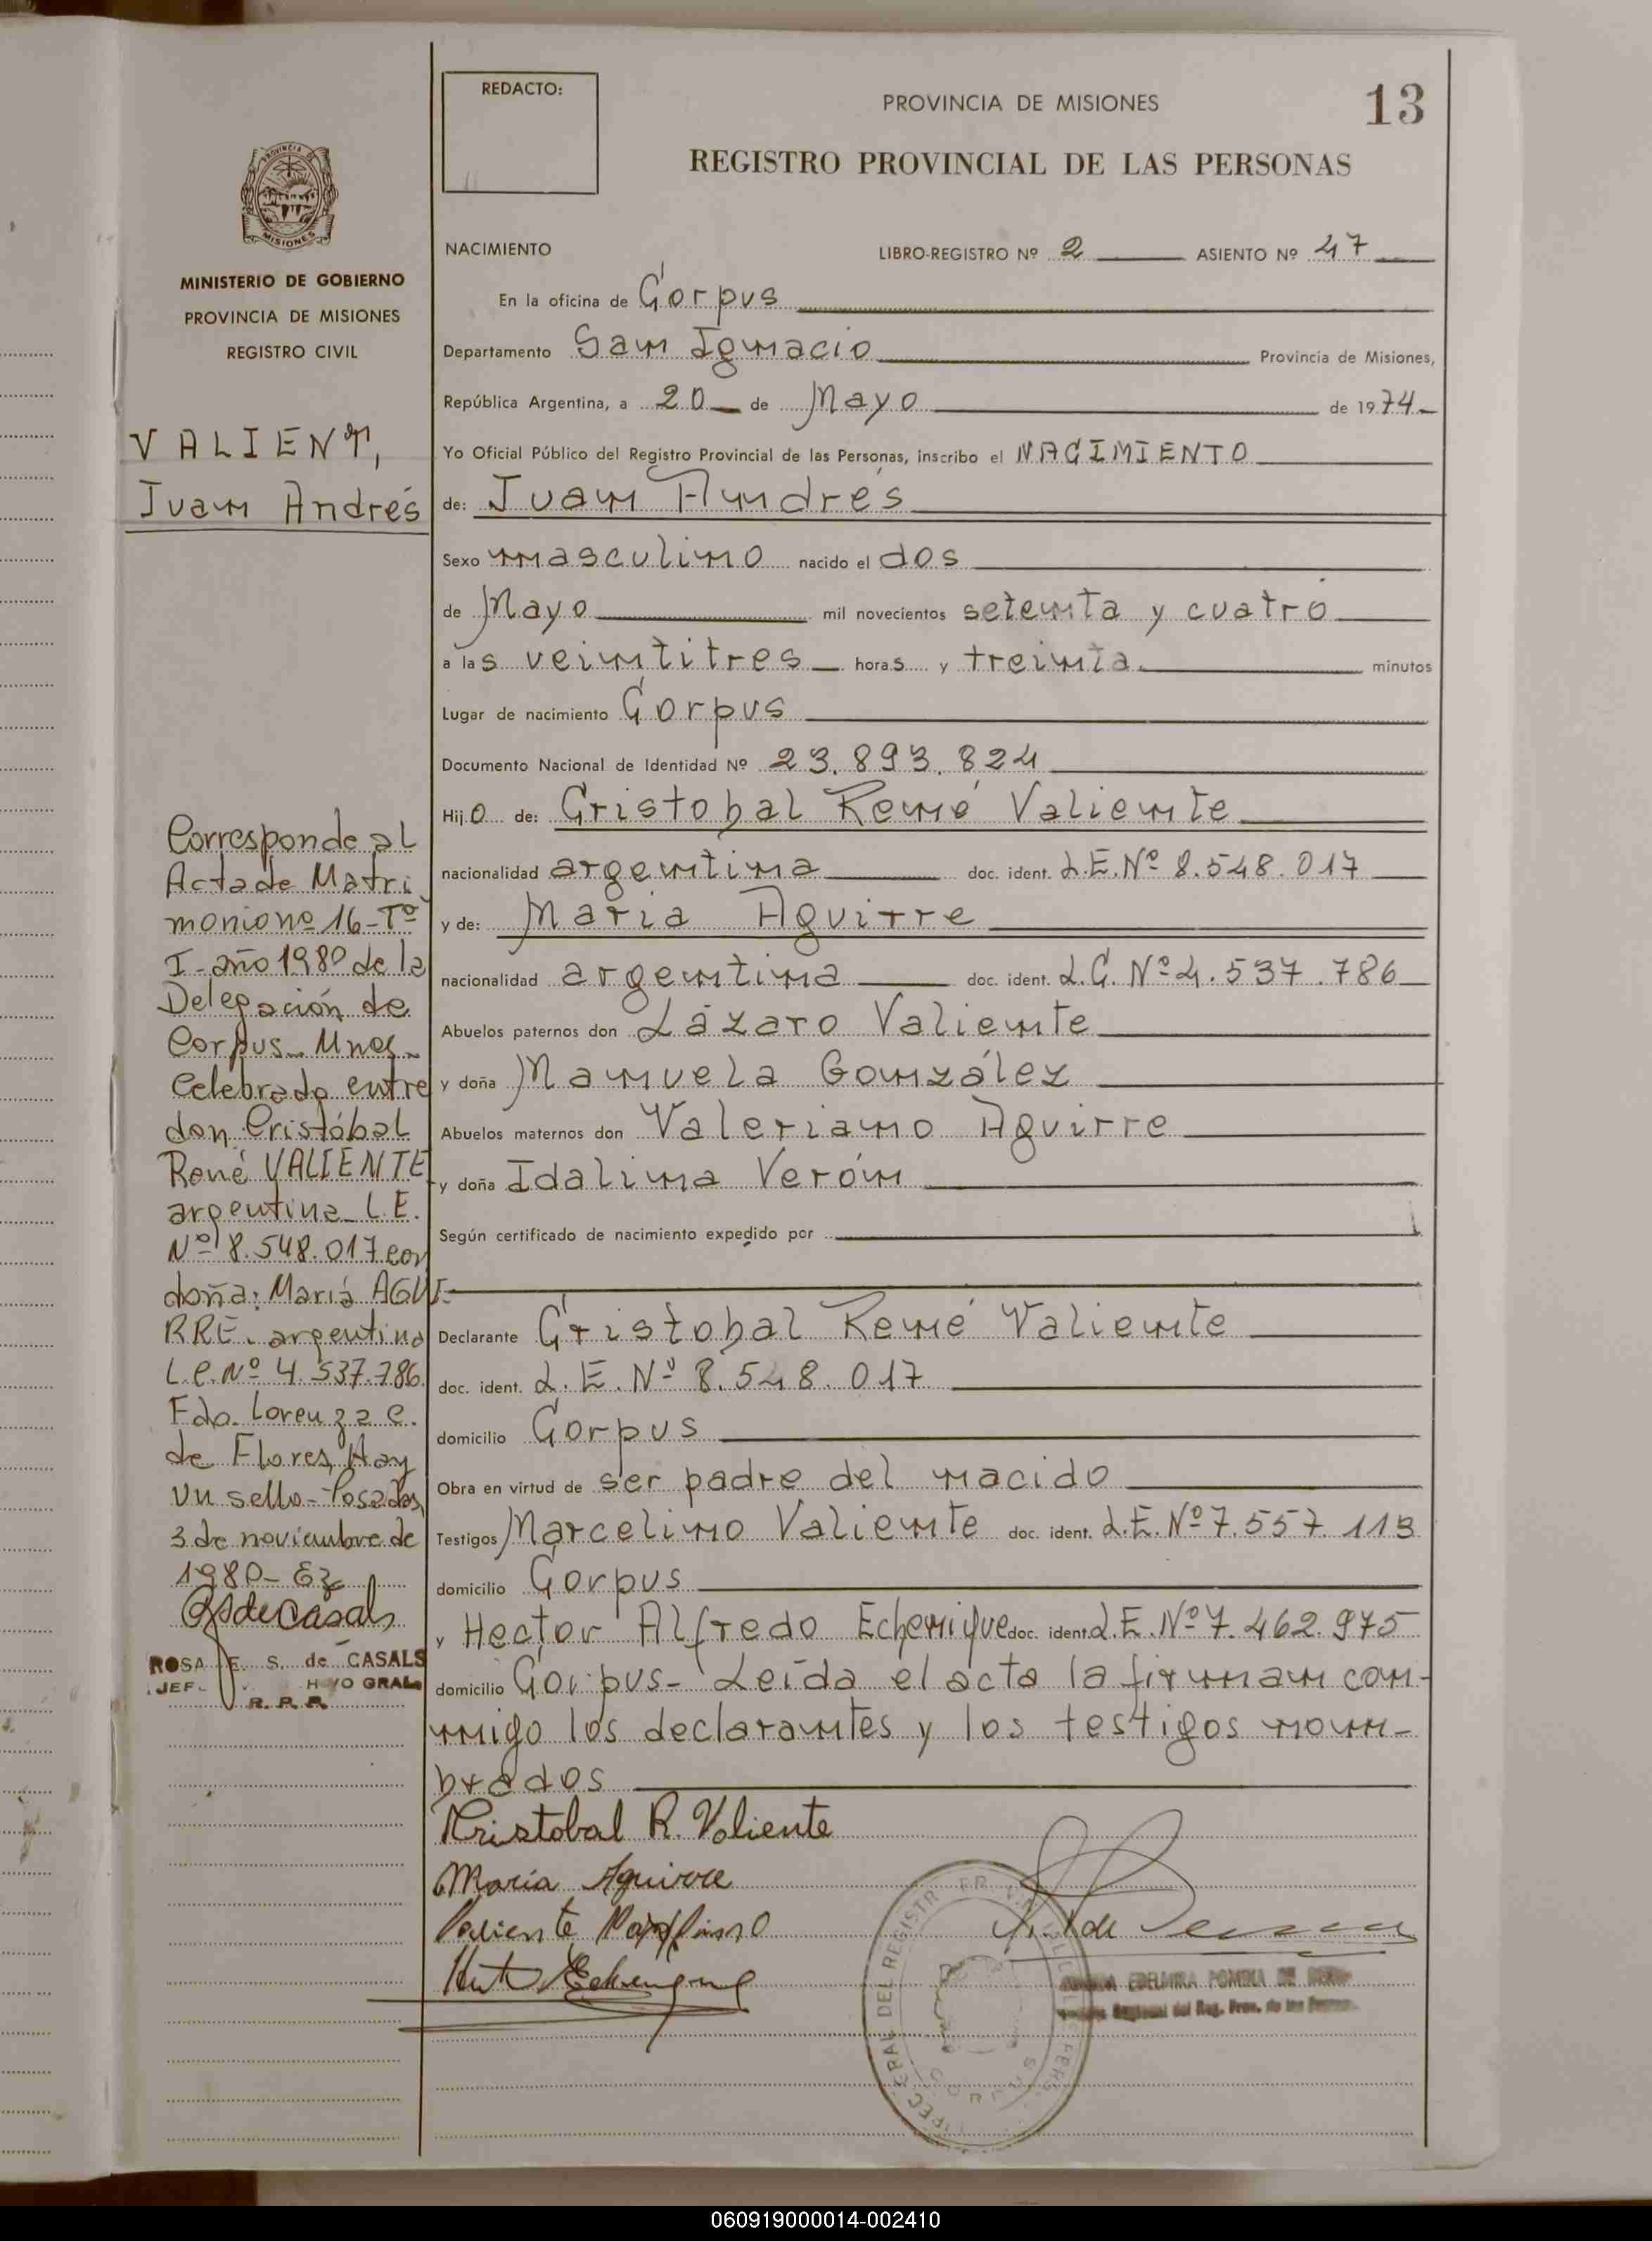 REDACTO:
PROVINCIA DE MISIONES
13
REGISTRO PROVINCIAL DE LAS PERSONAS
MISIONES
MINISTERIO DE GOBIERNO
PROVINCIA DE MISIONES
REGISTRO CIVIL
VALIENTE,
Juan Andrés
Corresponde al
Acta de Matri
monio nº 16-Tº
I-año 1980 de la
Delegación de
Corpus-Mnes-
Celebrado entre
don Cristóbal
René VALIENTE
argentina L.E.
Nº 8.548.017 con
doña: María AGUI-
RRE. argentina
L.C. Nº 4.537.786
Fdo. Lorenza C.
de Flores, Hay
un sello-Posadas,
3 de noviembre de
1980-
ROSA E. S. de CASALS
R. P. P.
NACIMIENTO LIBRO-REGISTRO Nº 2 ASIENTO Nº 47
En la oficina de Corpus
Departamento San Ignacio Provincia de Misiones,
República Argentina, a 20 de Mayo de 1974-
Yo Oficial Público del Registro Provincial de las Personas, inscribo el NACIMIENTO
de: Juan Andrés
Sexo masculino nacido el dos
de Mayo mil novecientos setenta y cuatro
a las veintitres horas y treinta minutos
Lugar de nacimiento Corpus
Documento Nacional de Identidad Nº 23.893.824
Hijo de: Cristobal René Valiente
nacionalidad argentina doc. ident. L.E. Nº 8.548.017
y de: Maria Aguirre
nacionalidad argentina doc. ident. L.C. Nº 4.537.786
Abuelos paternos don Lázaro Valiente
y doña Manuela González
Abuelos maternos don Valeriano Aguirre
y doña Idalina Verón
Según certificado de nacimiento expedido por
Declarante Cristobal René Valiente
doc. ident. L.E. Nº 8.548.017
domicilio Corpus
Obra en virtud de ser padre del nacido
Testigos Marcelino Valiente doc. ident. L.E. Nº 7.557.113
domicilio Corpus
y Hector Alfredo Echenique doc. ident. L.E. Nº 7.462.975
domicilio Corpus- Leída el acta la firman con-
migo los declarantes y los testigos nom-
brados
Kristobal R. Valiente
Maria Aguirre
Valiente
EDELMIRA
060919000014-002410